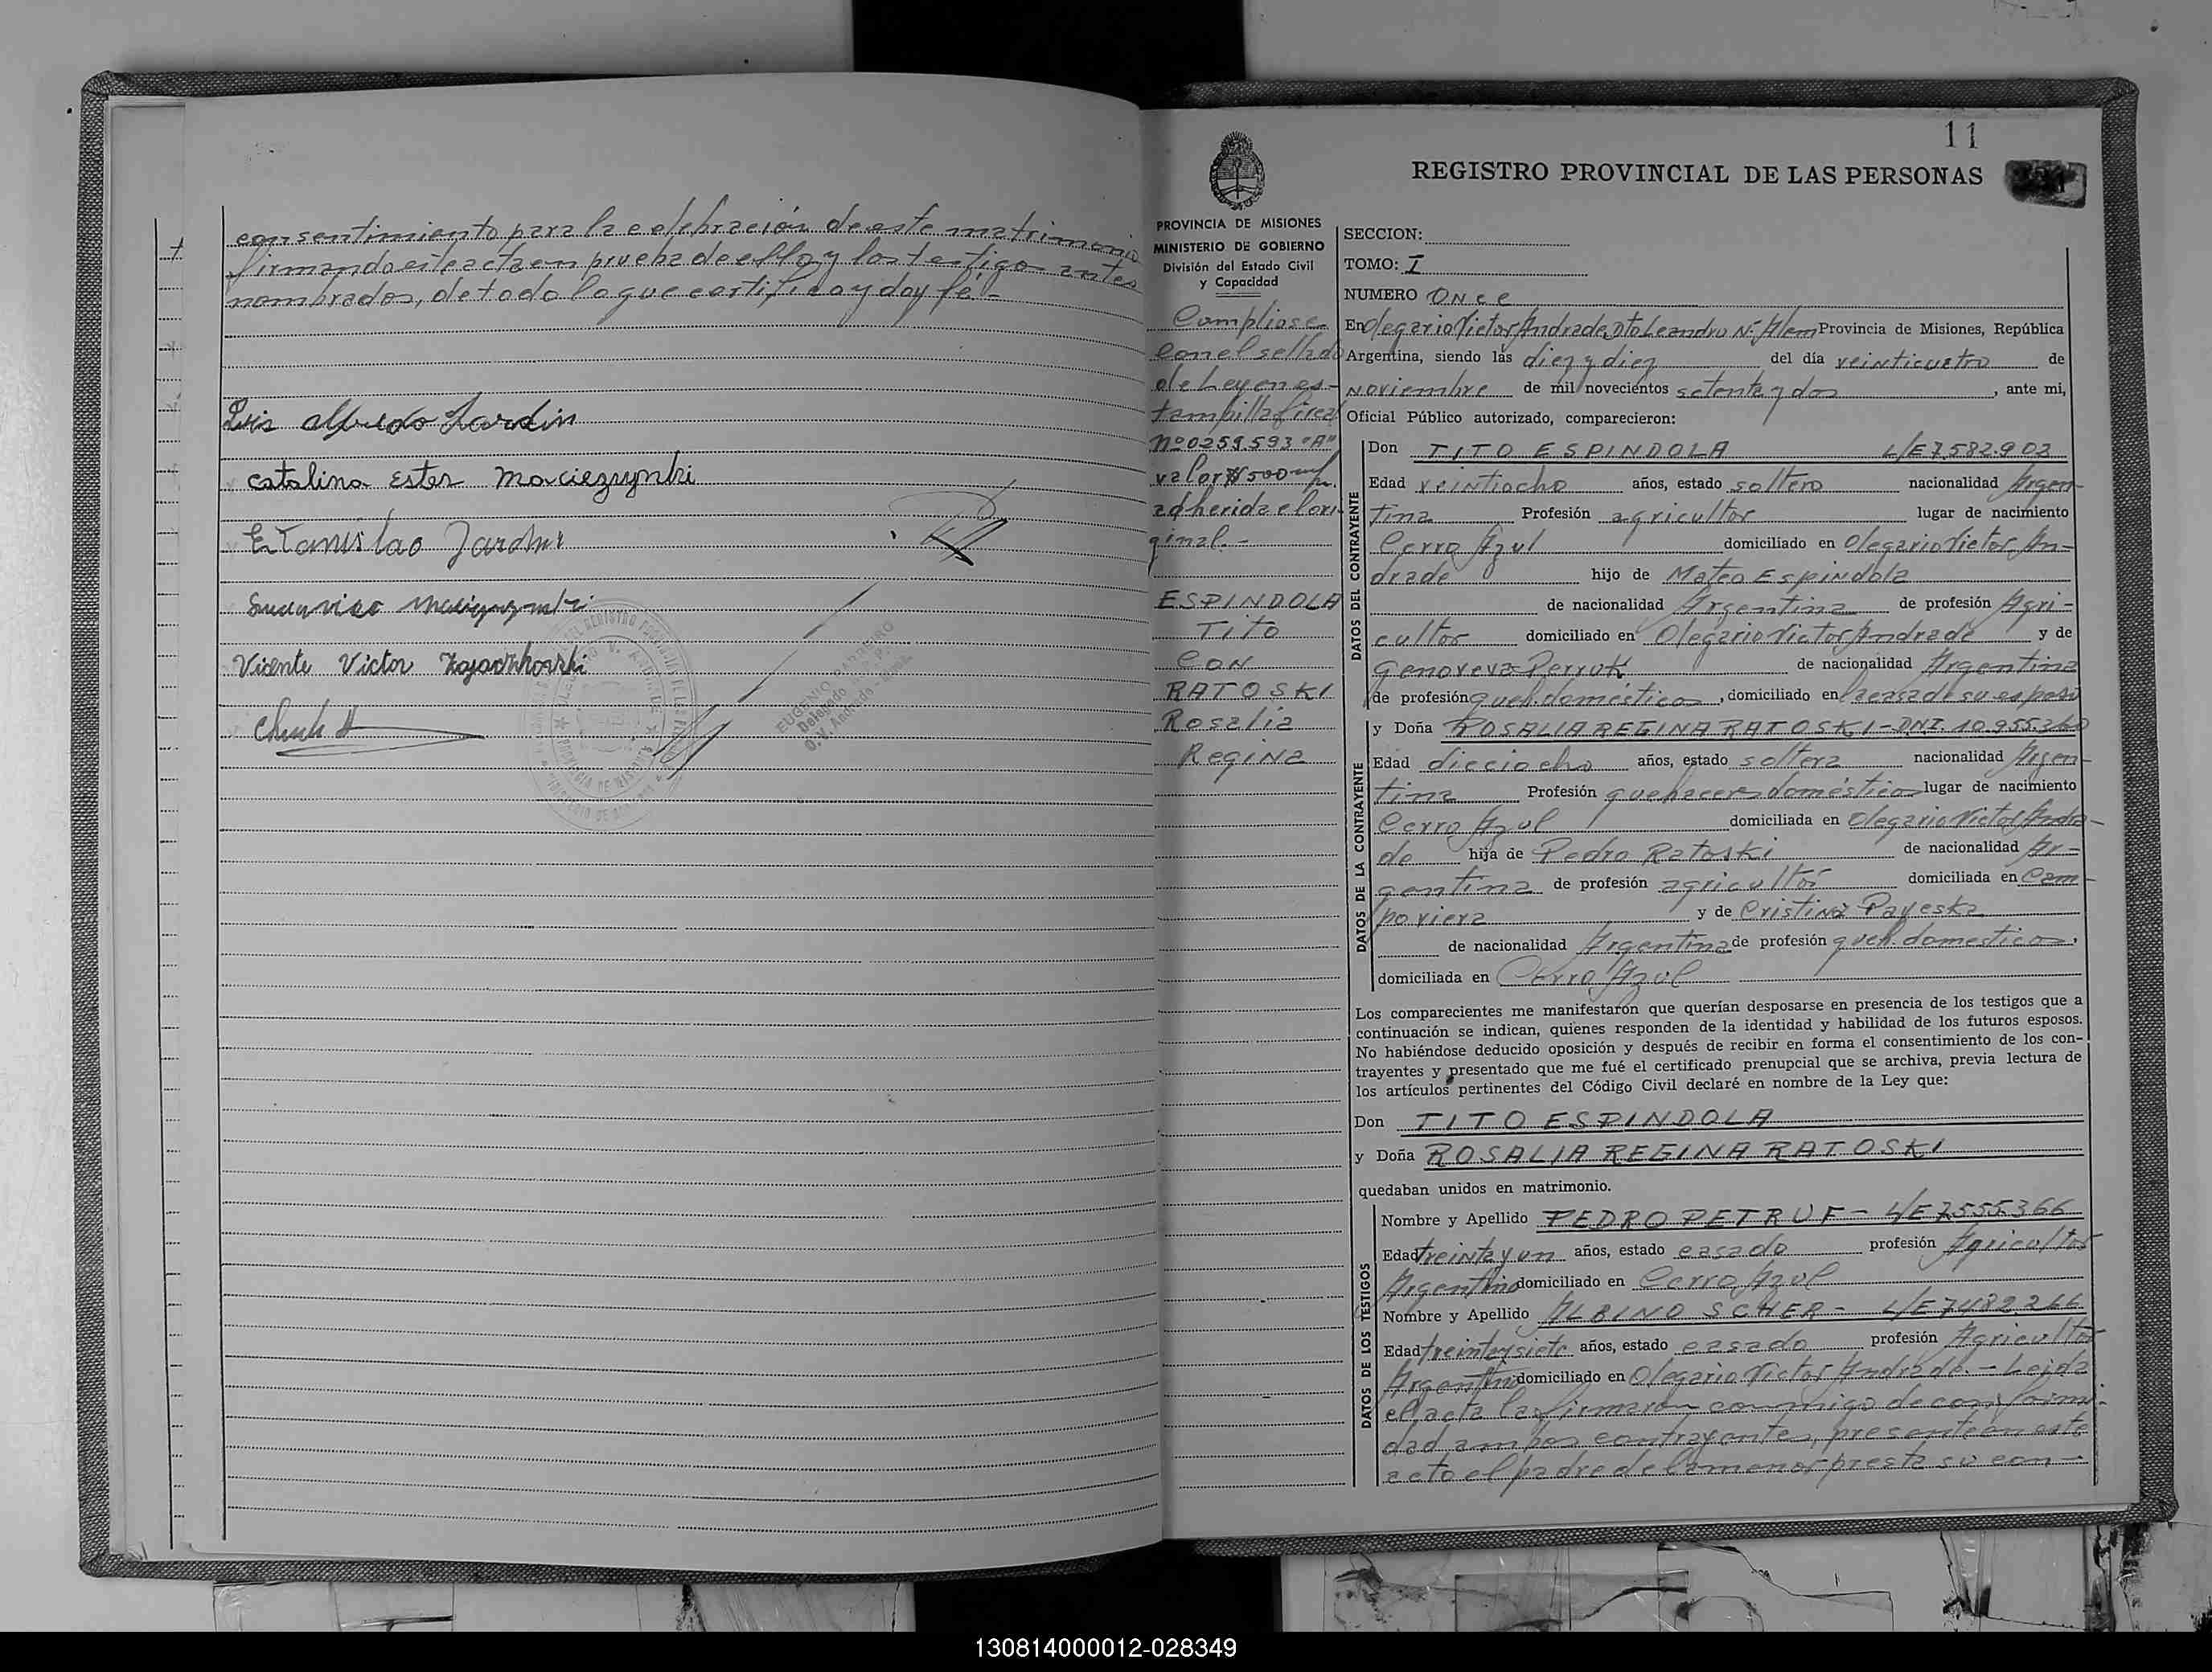 consentimiento para la celebración de este matrimonio
firmando este acta en prueba de ello y los testigos antes
nombrados, de todo lo que certifico y doy fé.-
Luis Alfredo Jardin
Catalina Ester Maciezynski
Estanislao Jardin
Vicente Victor
REGISTRO PROVINCIAL DE LAS PERSONAS
EUGENIO BARRIRO
Delegado
O. V. Andrade
11
REGISTRO PROVINCIAL DE LAS PERSONAS
PROVINCIA DE MISIONES
MINISTERIO DE GOBIERNO
División del Estado Civil
y Capacidad
Compliose
con el sellado
de Ley en es-
tampilla fiscal
Nº 0259593 "A"
valor $500 m/n.
adherida el ori-
ginal.-
ESPINDOLA
Tito
CON
RATOSKI
Rosalia
Regina
SECCION:
TOMO: I
NUMERO ONCE
En Olegario Victor Andrade, Dto Leandro N. Alem Provincia de Misiones, República
Argentina, siendo las diez y diez del día veinticuatro de
noviembre de mil novecientos setenta y dos, ante mi,
Oficial Público autorizado, comparecieron:
DATOS DEL CONTRAYENTE
Don TITO ESPINDOLA L/E 7.582.902
Edad veintiocho años, estado soltero nacionalidad Argen-
tina Profesión agricultor lugar de nacimiento
Cerro Azul domiciliado en Olegario Victor An-
drade hijo de Mateo Espindola
de nacionalidad Argentina de profesión Agri-
cultor domiciliado en Olegario Victor Andrade y de
Genoveva Perruk de nacionalidad Argentina
de profesión queh. domésticos, domiciliado en la casa de su esposo
DATOS DE LA CONTRAYENTE
y Doña ROSALIA REGINA RATOSKI - DNI. 10.955.360
Edad dieciocho años, estado soltera nacionalidad Argen-
tina Profesión quehaceres domésticos lugar de nacimiento
Cerro Azul domiciliada en Olegario Victor Andra-
de hija de Pedro Ratoski de nacionalidad Ar-
gentina de profesión agricultor domiciliada en Cam-
po viera y de Cristina Payeska
de nacionalidad Argentina de profesión queh. domesticos,
domiciliada en Cerro Azul
Los comparecientes me manifestaron que querían desposarse en presencia de los testigos que a
continuación se indican, quienes responden de la identidad y habilidad de los futuros esposos.
No habiéndose deducido oposición y después de recibir en forma el consentimiento de los con-
trayentes y presentado que me fué el certificado prenupcial que se archiva, previa lectura de
los artículos pertinentes del Código Civil declaré en nombre de la Ley que:
Don TITO ESPINDOLA
y Doña ROSALIA REGINA RATOSKI
quedaban unidos en matrimonio.
DATOS DE LOS TESTIGOS
Nombre y Apellido PEDRO PETRUF - L/E 7.555.366
Edad treinta y un años, estado casado profesión Agricultor
Argentino domiciliado en Cerro Azul
Nombre y Apellido ALBINO SCHER - L/E 7482266
Edad treinta y siete años, estado casado profesión Agricultor
Argentino domiciliado en Olegario Victor Andrade.- Leida
el acta la firmaron conmigo de conformi-
dad ambos contrayentes, presente en este
acto el padre de la menor presta su con-
130814000012-028349